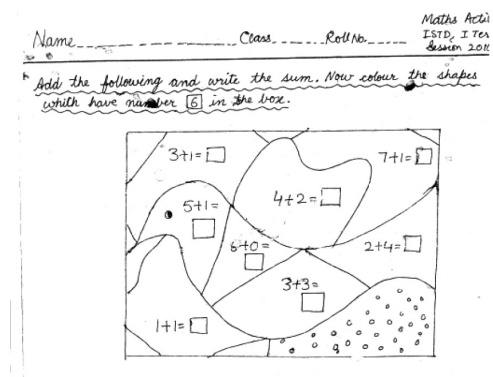 Maths Acti
Name Class Roll No. ISTD, I Ter
Session 201
Add the following and write the sum. Now colour the shapes
whith have number 6 in the box.
3+1=
7+1=
4+2=
5+1=
6+0=
2+4=
3+3=
1+1=